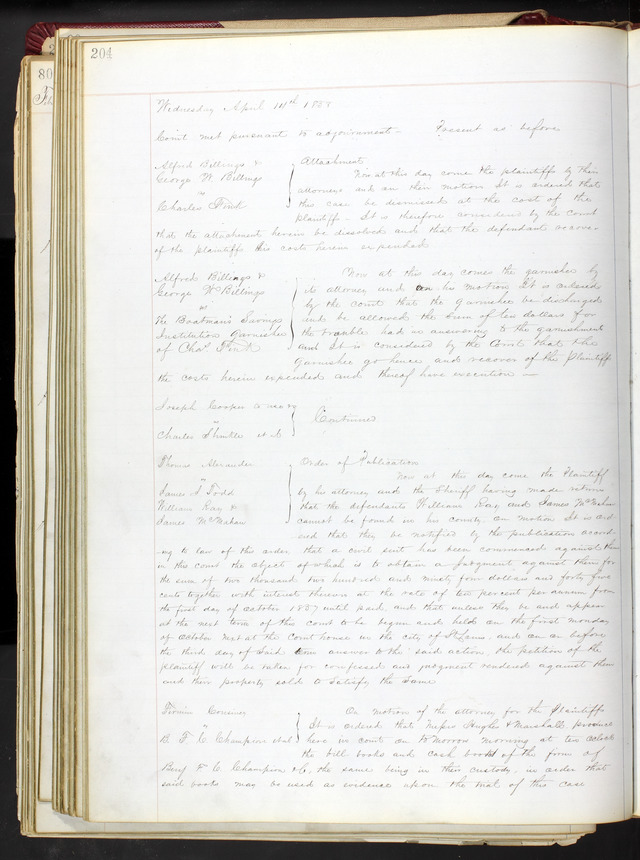 204
80
Wednesday April 14th 1858
Court met pursuant to adjournment – Present as before
Alfred Billings &
George W Billings
vs
Charles Fink
Attachment
Now at this day come the plaintiffs by their
attorneys and on their motion It is ordered that
this case be dismissed at the cost of the
plaintiffs – It is therefore considered by the Court
that the attachment herein be dissolved and that the defendant recover
of the plaintiffs his costs herein expended
Alfred Billings &
George W Billings
vs
The Boatman's Savings
Institution garnishee
of Chas. Fink
Now at this day comes the garnishee by
its attorney and on his motion It is ordered
by the court that the garnishee be discharged
and be allowed the sum of ten dollars for
the trouble had in answering to the garnishment
and It is considered by the Court that the
Garnishee go hence and recover of the Plaintiff
the costs herein expended and thereof have execution –
Joseph Cooper
Charles et al
Continued
Thomas Alexander
"
James Todd
William Ray &
James McMahan
Order of Publication
Now at this day come the Plaintiff
by his attorney and the Sheriff having made return
that the defendants William Ray and James McMahan
cannot be found in his county. on motion It is ord
ered that they be notified by the publication accord
-ing to law of this order that a civil suit has been commenced against them
in this court the object of which is to obtain a Judgment against them for
the sum of two thousand two hundred and ninety four dollars and forty five
cents together with interest thereon at the rate of ten percent per annum from
the first day of october 1857 until paid and that unless they be and appear
at the next term of this court to be begun and held on the first monday
of october next at the Court house in the city of St Louis. and on or before
the third day of Said term answer to the said action the petition of the
plaintiff will be taken for confessed and judgment rendered against them
and their property sold to satisfy the Same
Firmin
"
B. F. & C Champion et al
On motion of the attorney for the Plaintiffs
It is ordered that & Marshall produce
here in court on tomorrow morning at ten oclock
the bill books and cash book of the firm of
Benj F & C. Champion & Co. the same being in their custody, in order that
said books may be used as evidence upon the trial of this case